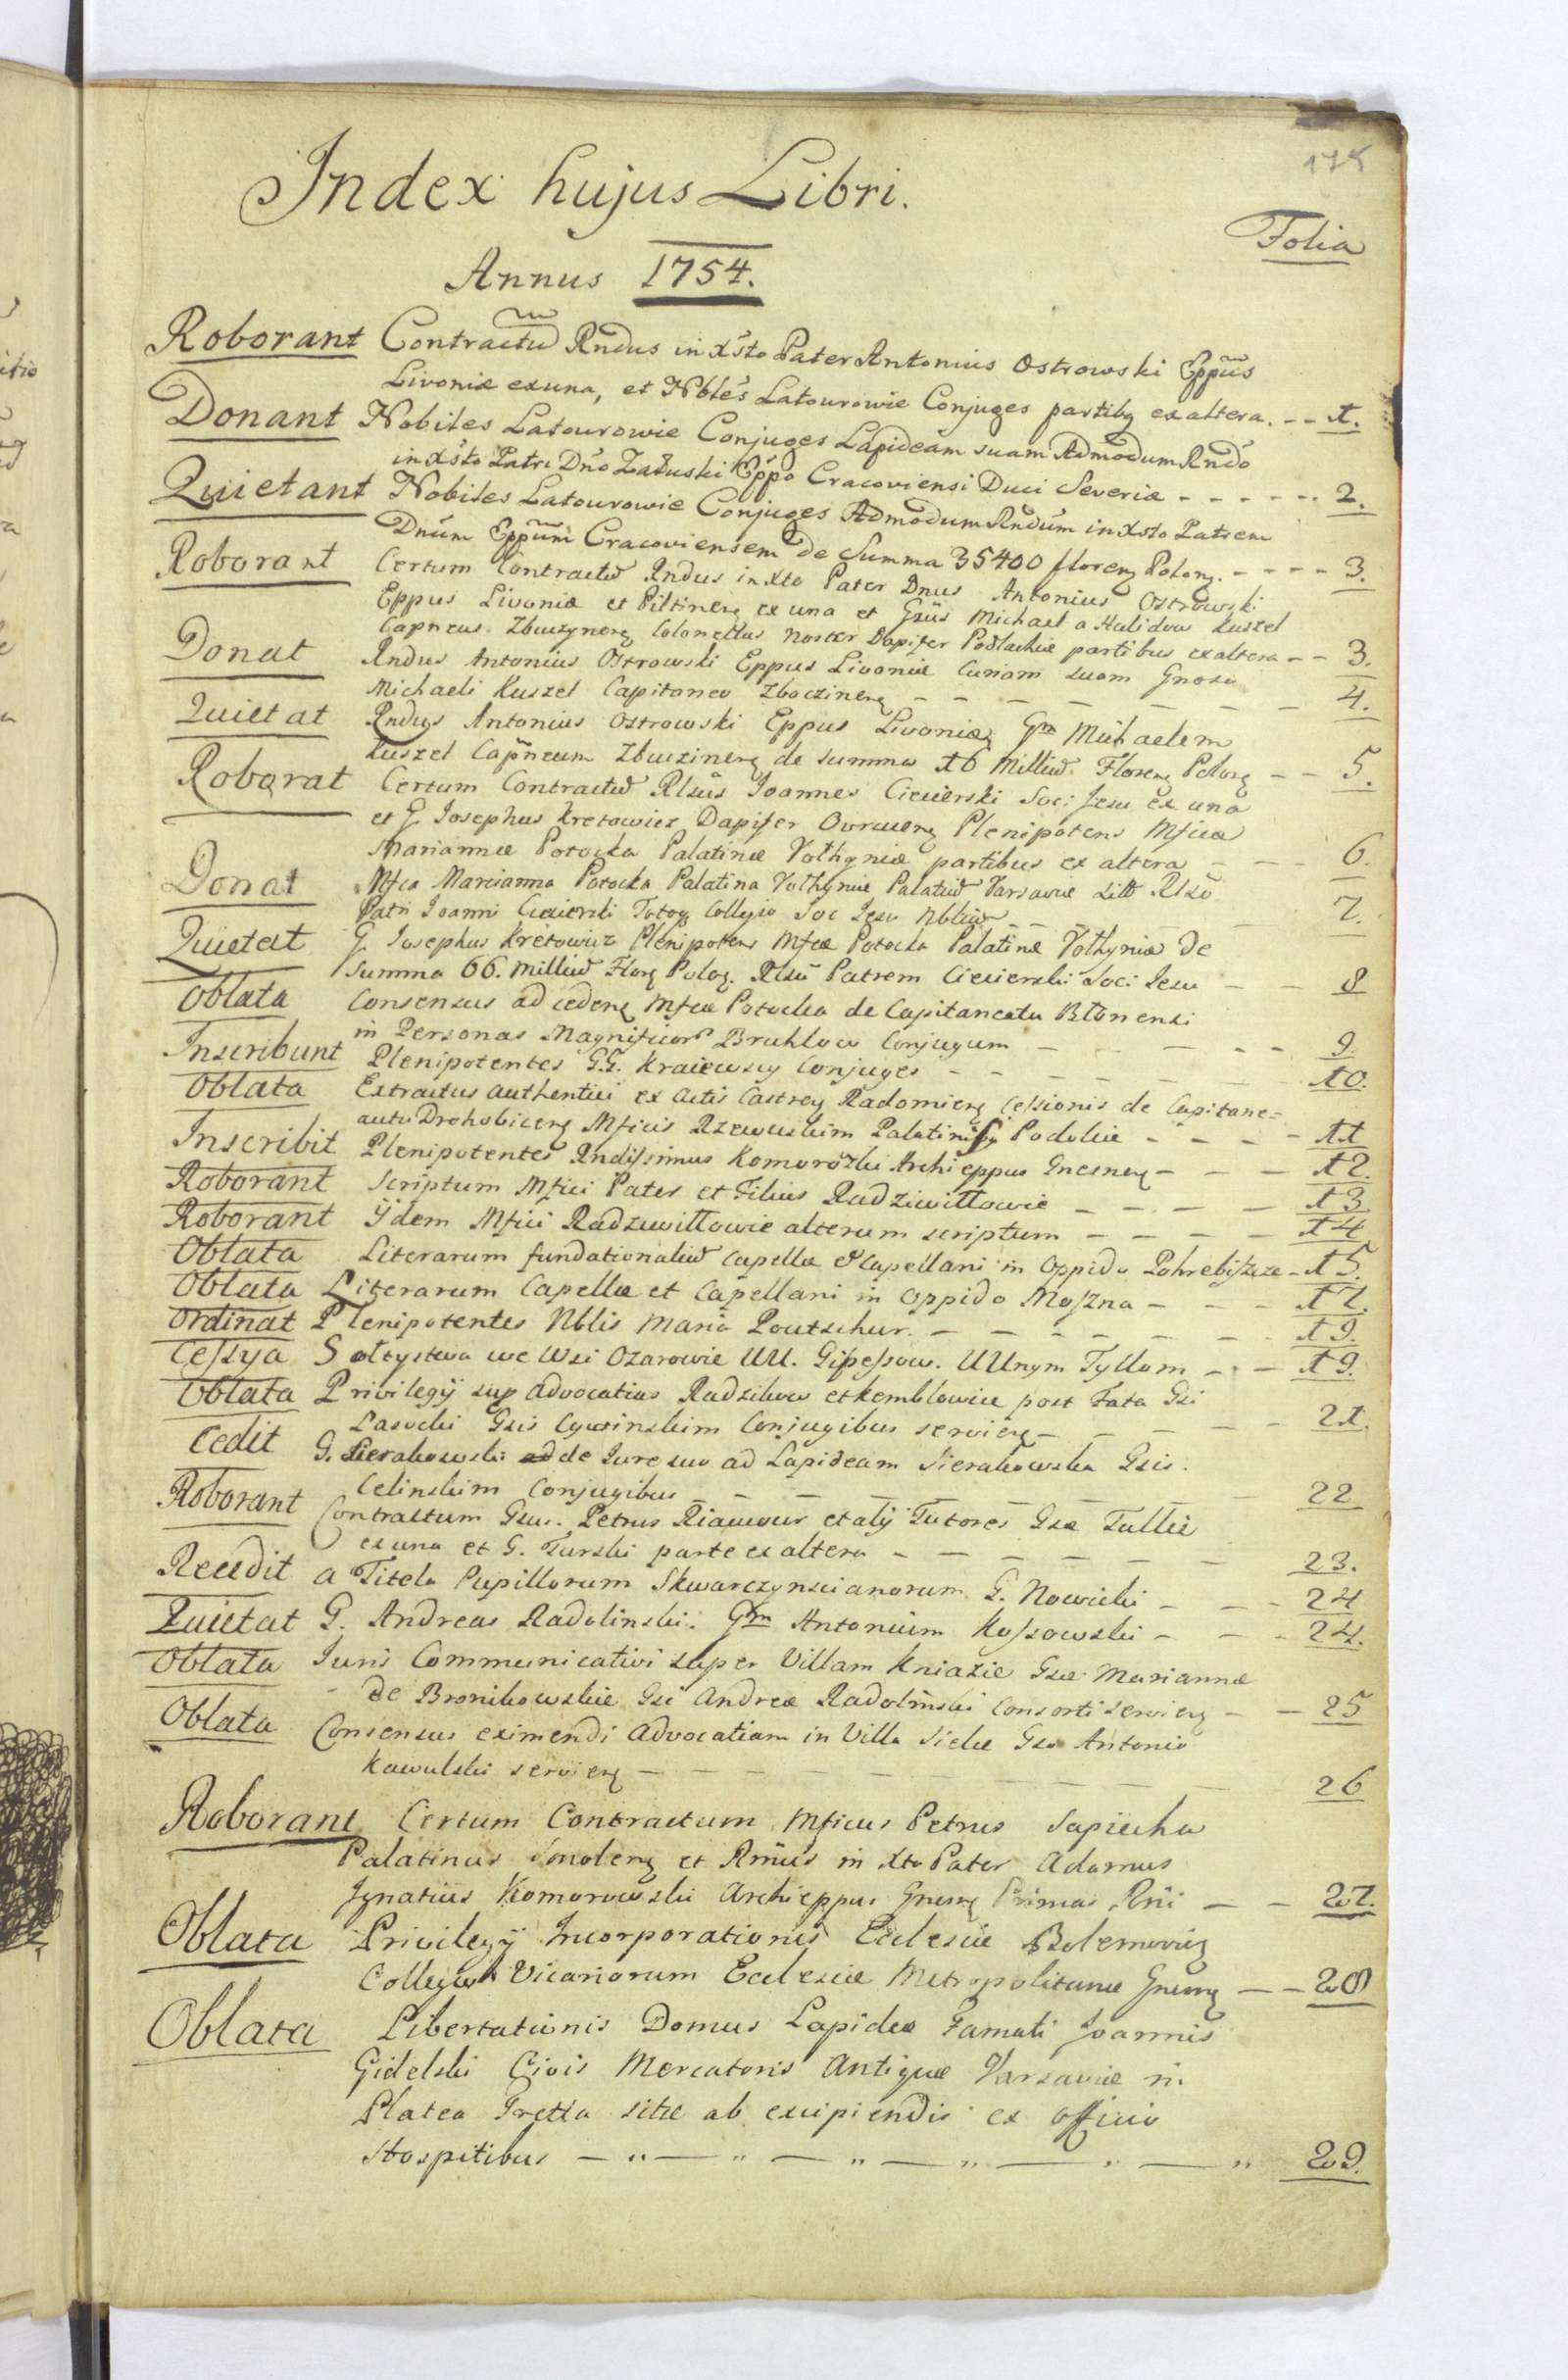 175
Index hujus Libri.
Folia
Annus 1754.
Roborant Contractũ Rndus in Xsto Pater Antonius Ostrowski Eppũs
Livoniæ ex una, et Nbles Latourowie Conjuges partibꝫ ex altera. - - 1.
Donant Nobiles Latourowie Conjuges Lapideam suam Admodum Rndo
in Xsto Patri Dno Załuski Eppo Cracoviensi Duci Severiæ - - - - - - 2.
Quietant Nobiles Latourowie Conjuges Admodum Rndum in Xsto Patrem
Dnum Eppum Cracoviensem de Summa 35400 florenꝫ Polonꝫ. - - - - 3.
Roborant Certum Contractũ Rndus in Xto Pater Dnus Antonius Ostrowski
Eppus Livoniæ et Piltinenꝫ ex una et Gsus Michael a Halidow Kuszel
Capneus. Zbuczynenꝫ Colonellus noster Dapifer Podlachiæ partibus ex altera - - 3.
Donat Rndus Antonius Ostrowski Eppus Livoniæ Curiam suam Gnoso
Michaeli Kuszel Capitaneo Zboczinenꝫ - - - - - - - 4.
Quietat Rndus Antonius Ostrowski Eppus Livoniæ Gm Michaelem
Kuszel Capneum Zbuczinenꝫ de summa 16 Milliũ Florenꝫ Polonꝫ - - 5.
Roborat Certum Contractũ Rlsus Joannes Ciecierski Soci Jesu ex una
et G. Josephus Kretowicz Dapifer Owrucenꝫ Plenipotens Mficæ
Mariannæ Potocka Palatinæ Volhyniæ partibus ex altera - - 6.
Donat Mfca Marcianna Potocka Palatina Volhyniæ Palatiũ Varsaviæ Sitũ Rlso
Patri Joanni Cieierski Totoqꝫ Collegio Soc Jesu Nbliũ - - - 7.
Quietat G. Josephus Kretowicz Plenipotens Mfcæ Potocka Palatinæ Volhyniæ de
Summa 66. Milliũ Florꝫ Polog. Rlsũ Patrem Ciecierski Soci: Jesu - - 8
Oblata Consensus ad cedenꝫ Mfcæ Potocka de Capitaneatu Błonensi
in Personas Magnificorũ Bruhlow Conjugum - - - - - 9
Inscribunt Plenipotentes G.G. Kraiewscy Conjuges - - - - - 10.
Oblata Extractus authentici ex Actis Castrenꝫ Radomienꝫ Cessionis de Capitane=
autu Drohobicenꝫ Mficis Rzewuskim Palatinisꝫ Podoliæ - - - - 11
Inscribit Plenipotentes Rndissimus Komorowski Archieppus Gnesnenꝫ - - - 12.
Roborant Scriptum Mfici Pater et Filius Radziwiłłowie - - - - 13
Roborant Ijdem Mfici Radziwiłłowie alterum scriptum - - - - 14
Oblata Literarum fundationaliũ Capellæ & Capellani in Oppido Pohrebiszcze - 15.
Oblata Literarum Capellæ et Capellani in Oppido Moszna - - - 17.
Ordinat Plenipotentes Nblis Maria Poutschur. - - - - - - 19.
Cessya Sołtystwa we Wsi Ozarowie UU. Gissessow. UUnym Tyllom - - - 19.
Oblata Privilegij sup Advocatias Radzikow et Kemblowice post Fata Gsi
Lasocki Gsis Cywinskim Conjugibus servienꝫ - - - - - 21.
Cedit G. Sierakowski de Jure suo ad Lapideam Sierakowska Gsis.
Celinskim Conjugibus - - - - - - - 22
Roborant Contractum Gsus. Petrus Riaucour et alij Tutores Gsæ Tullie
ex una et G. Turski parte ex altera - - - - - - 23.
Recedit a Titela Pupillorum Skwarczynscianorum G. Nowicki - - - 24
Quietat G. Andreas Radolinski: Gm Antonium Kossowski - - - 24.
Oblata Juris Communicativi super Villam Kniazie Gsæ Mariannæ
de Bronikowskie Gsi Andreæ Radolinski Consorti servienꝫ - - 25
Oblata Consensus eximendi Advocatiam in Villa Sielce Gso Antonio
Kawulski servienꝫ - - - - - - - - 26
Roborant Certum Contractum Mficus Petrus Sapiecha
Palatinus Smolenꝫ et Rmus in Xto Pater Adamus
Ignatius Komorowski Archieppus Gnesnꝫ Primas Rni - - 27.
Oblata Privilegij Incorporationis Ecclesiæ Bolemoviꝫ
Collegio Vicariorum Ecclesiæ Metropolitanæ Gnesnꝫ - - 28
Oblata Libertationis Domus Lapideæ Famati Joannis
Gidelski Civis Mercatoris Antiquæ Varsaviæ in
Platea Fretta sitæ ab excipiendis ex officio
Hospitibus - " - " - " - " - " - " 29.